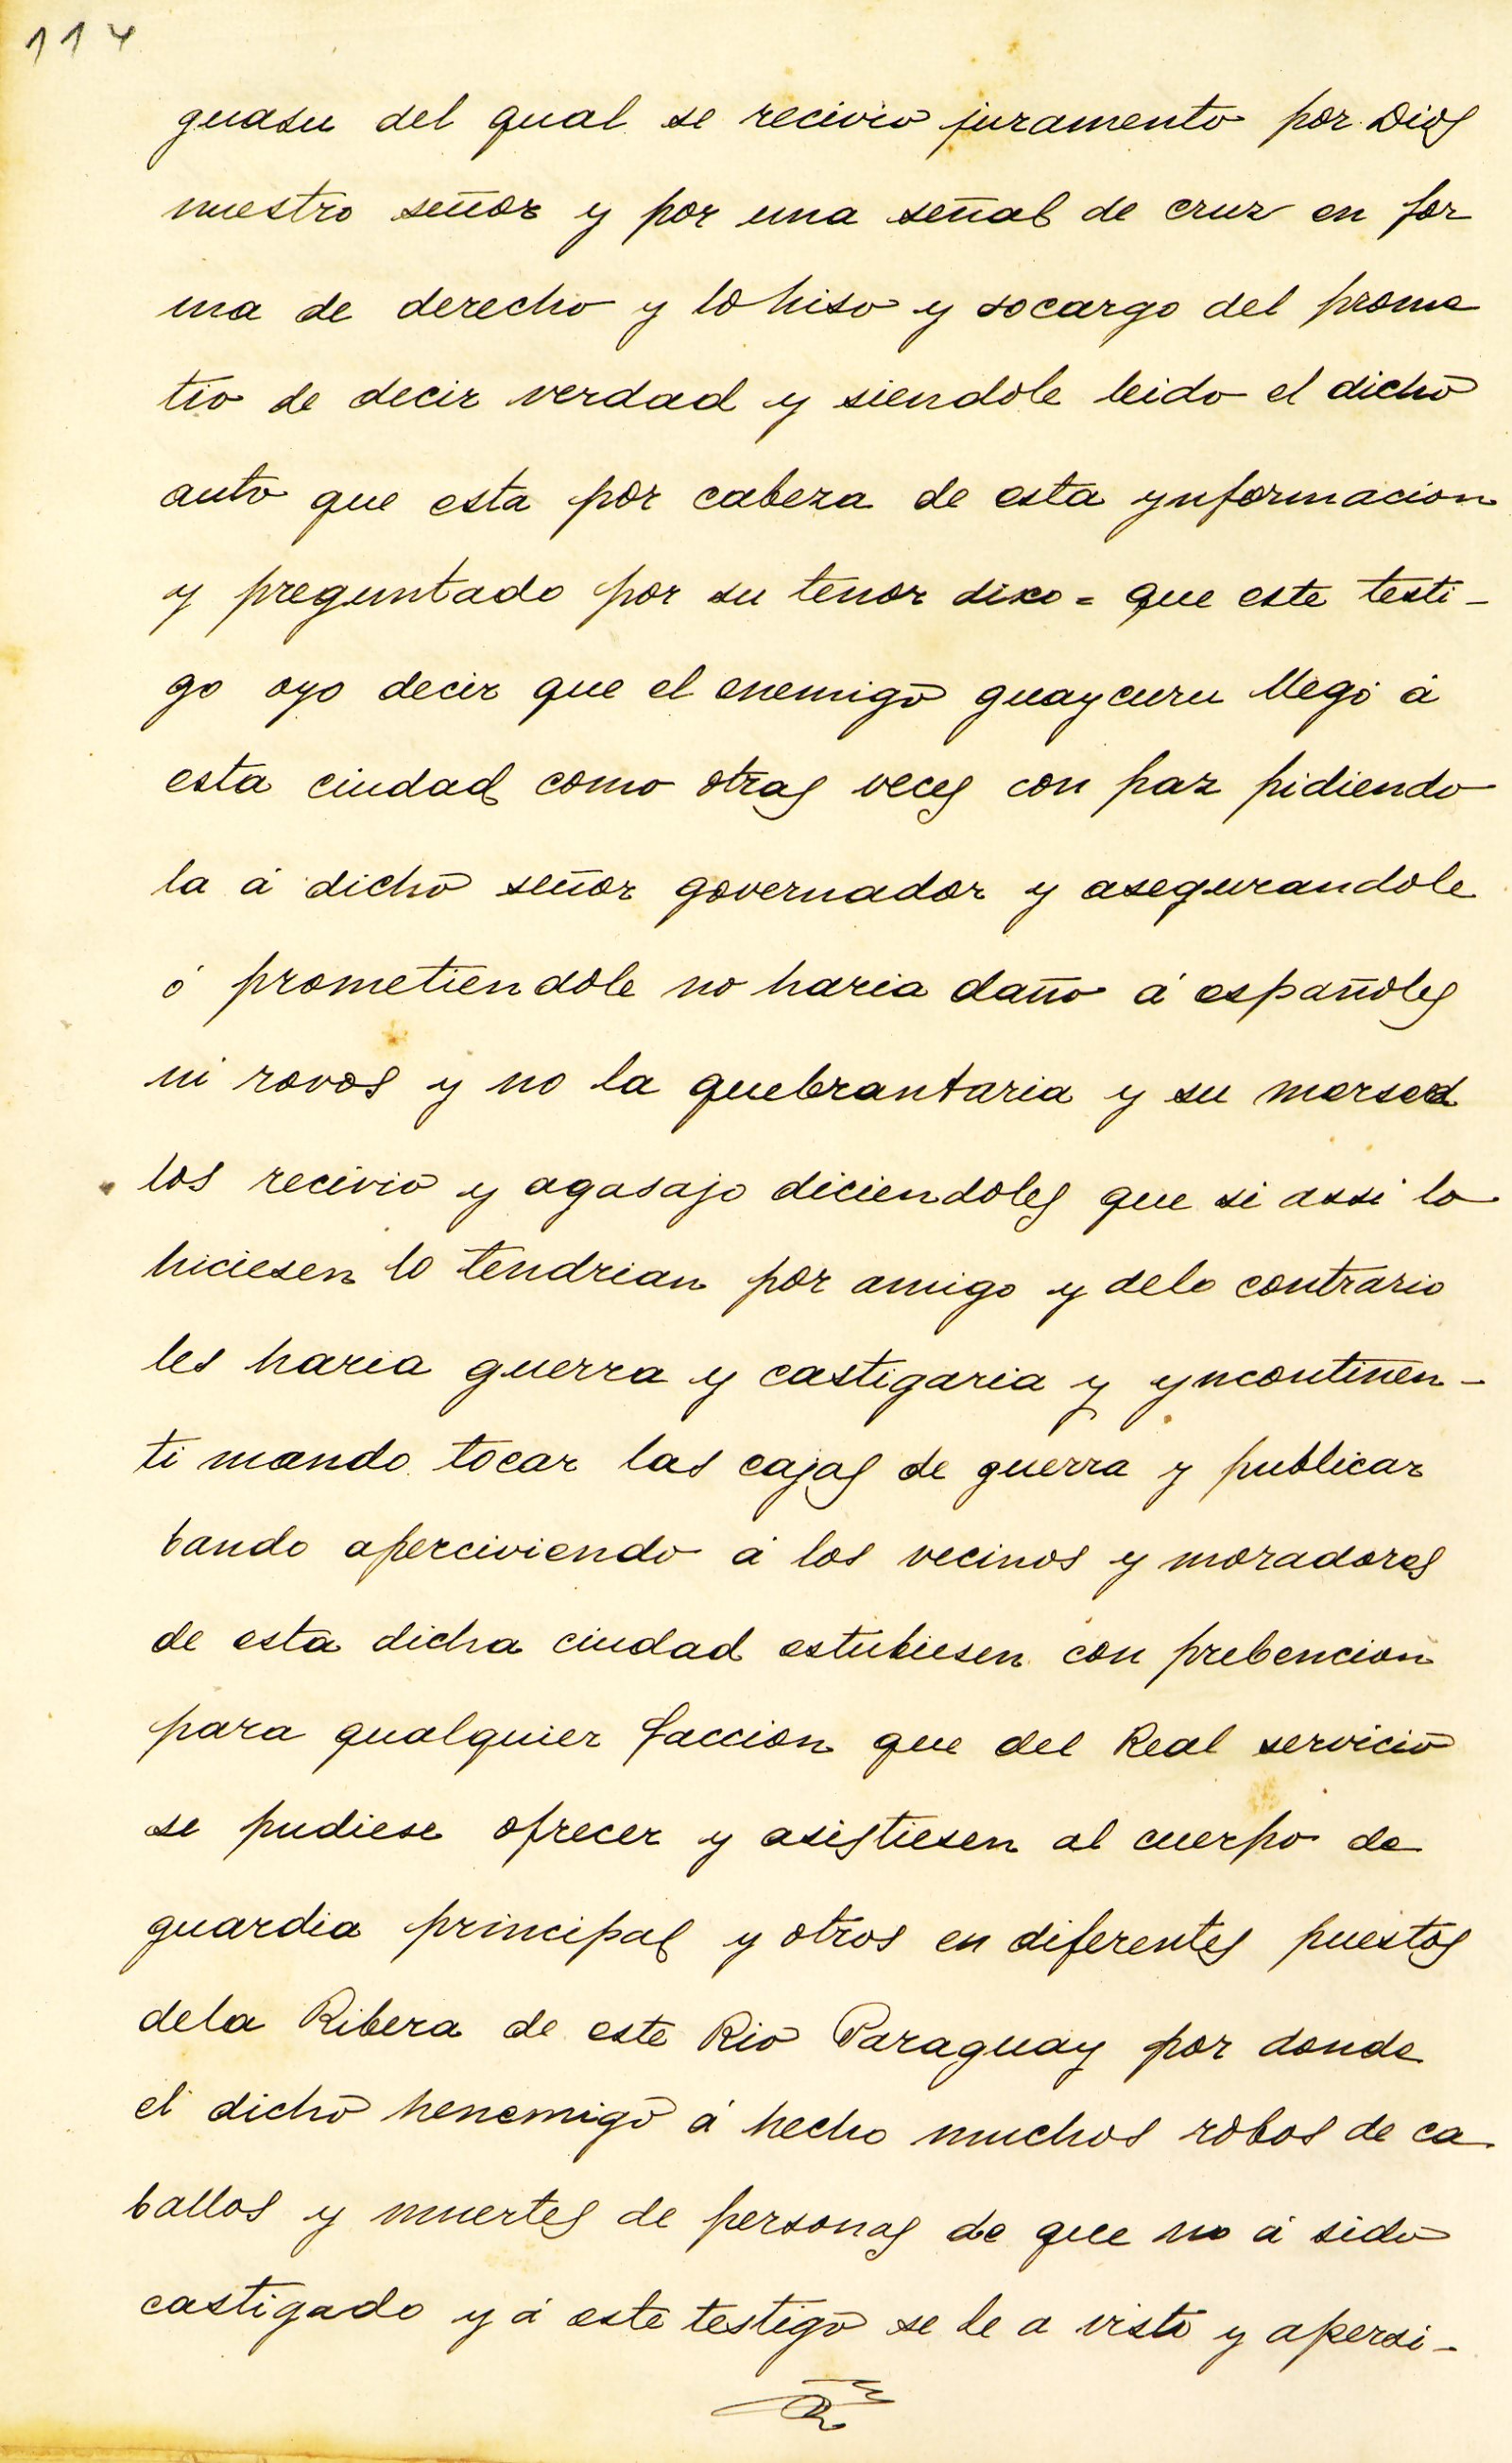 114
guasu del qual se recivio juramento por Dios
nuestro señor y por una señal de cruz en for
ma de derecho y lo hiso y socargo del prome
tio de decir verdad y siendole leido el dicho
auto que esta por cabeza de esta ynformacion
y preguntado por su tenor dixo = que este testi-
go oyo decir que el enemigo guaycuru llegó á
esta ciudad como otras veces con paz pidiendo
la á dicho señor governador y asegurandole
ó prometiendole no haria daño á españoles
ni rovos y no la quebrantaria y su mersed
los recivio y agasajo diciendoles que si assi lo
hiciesen lo tendrian por amigo y delo contrario
les haria guerra y castigaria y yncontinen-
ti mando tocar las cajas de guerra y publicar
bando aperciviendo á los vecinos y moradores
de esta dicha ciudad estubiesen con prebencion
para qualquier faccion que del Real servicio
se pudiese ofrecer y asistiesen al cuerpo de
guardia principal y otros en diferentes puestos
dela Ribera de este Rio Paraguay por donde
el dicho henemigo á hecho muchos robos de ca
ballos y muertes de personas de que no á sido
castigado y á este testigo se le a visto y apersi-